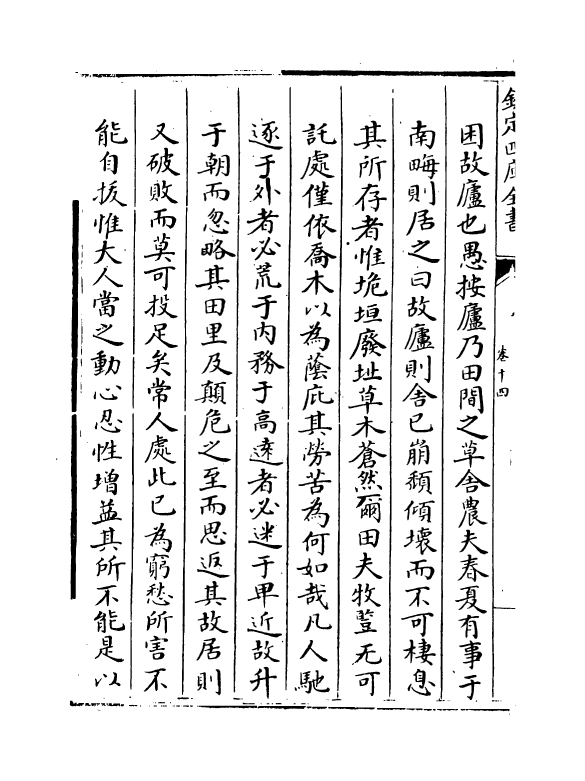 欽定四庫全書
卷十四
困故廬也愚按廬乃田間之草舍農夫春夏有事于
南畮則居之曰故廬則舍已崩頹傾壞而不可棲息
其所存者惟垝垣廢址草木蒼然爾田夫牧豎无可
託處僅依喬木以為蔭庇其勞苦為何如哉凡人馳
逐于外者必荒于内務于高逺者必迷于卑近故升
于朝而忽略其田里及顛危之至而思返其故居則
又破敗而莫可投足矣常人處此已為窮愁所害不
能自拔惟大人當之動心忍性增益其所不能是以